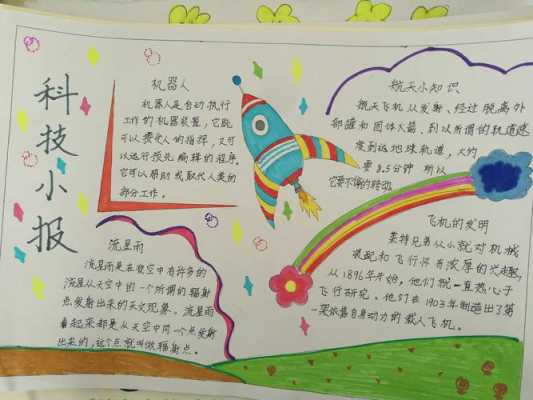 科技小报
机器人
机器人是自动执行
工作的机器装置，它既
可以接受人的指挥，又可
以运行预先编辑的程序。
它可以帮助或取代人类的
部分工作。
航天小知识
航天飞机从发射、经过脱离外
部罐和固体火箭、到以所谓的轨道速
度到达地球轨道，大约
要8.5分钟 所以
它要不停的转动
流星雨
流星雨是在夜空中有许多的
流星从天空中的一个所谓的辐射
点发射出来的天文现象。流星雨
看起来都是从天空中同一个点发射
出来的，这个点就叫做辐射点。
飞机的发明
莱特兄弟从小就对机械
装配和飞行怀有浓厚的兴趣，
从1896年开始，他们就一直热心于
飞行研究。他们在1903年制造出了第
一架依靠自身动力的载人飞机。